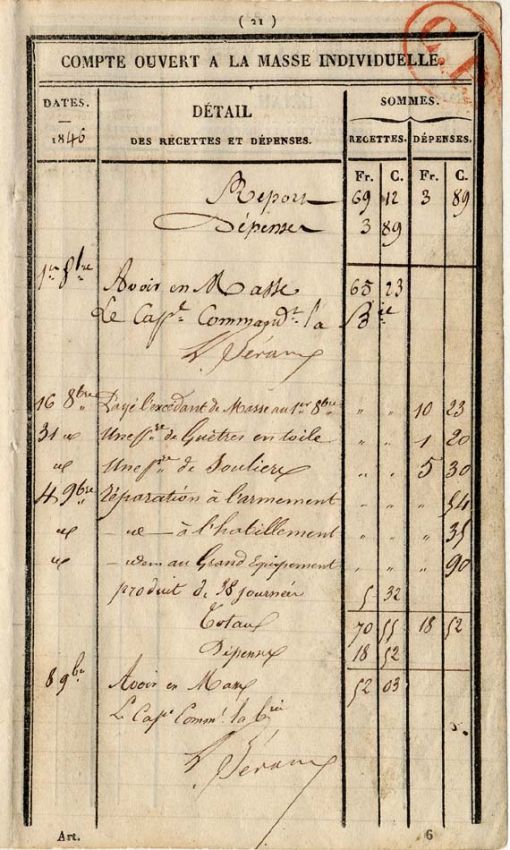 ( 21 )
COMPTE OUVERT A LA MASSE INDIVIDUELLE.
DATES. DÉTAIL SOMMES.
1846 DES RECETTES ET DÉPENSES. RECETTES. DÉPENSES.
Fr. C. Fr. C.
Report 69 12 3 89
Dépenses 3 89
1er 8bre Avoir en Masse 65 23
Le Capne Commandt la Bie
16 8bre Payé l'excédant de Masse au 1er 8bre " " 10 23
31 d° Une pre de Guêtres en toile " " 1 20
d° Une pre de Souliers " " 5 30
4 9bre Réparation à l'armement " " " 54
d° - d° - à l'habillement " " " 35
d° - idem au Grand Equipement " " " 90
produit de 38 journées 5 32
Totaux 70 55 18 52
Dépenses 18 52
8 9bre Avoir en Masse 52 03
Le Capne Commt la bie
Art. 6